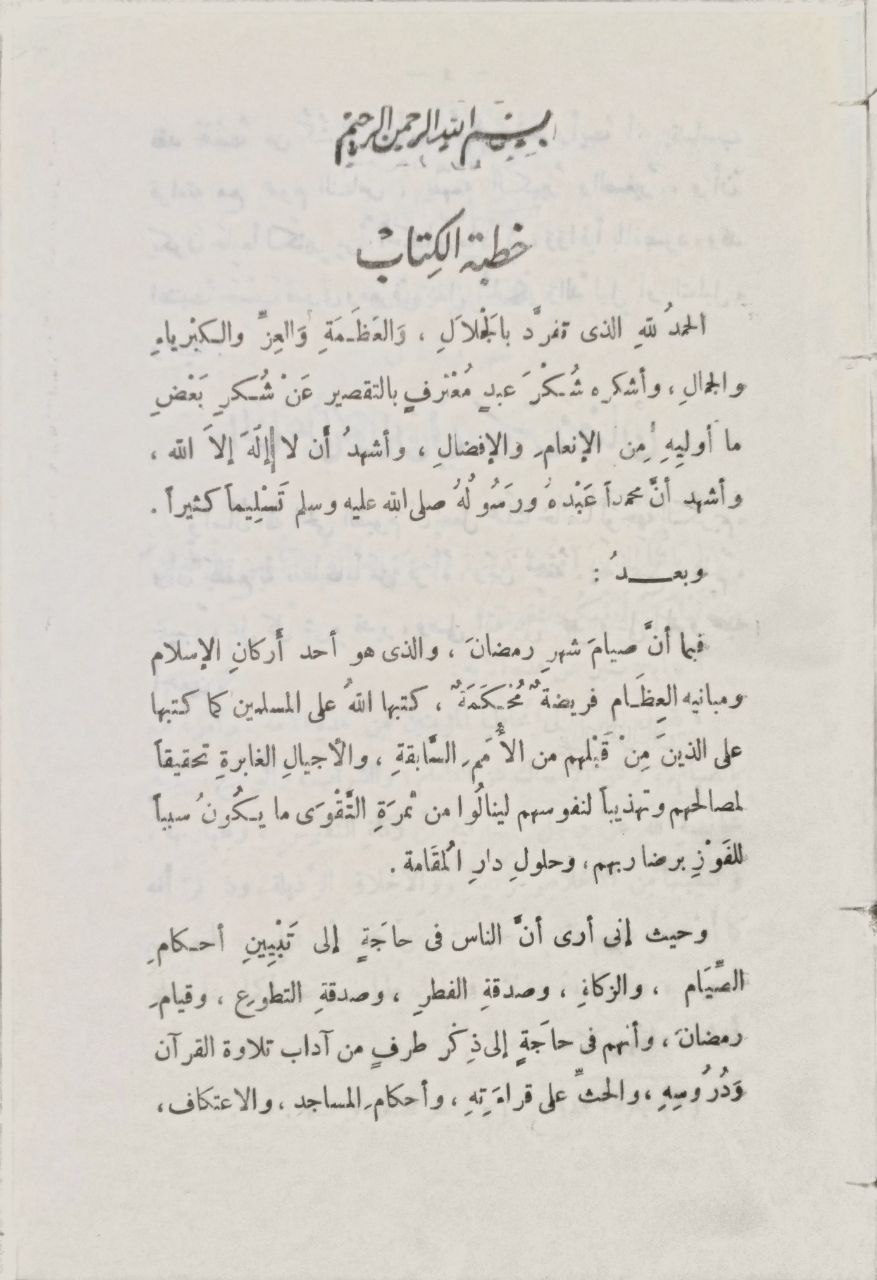 بسم الله الرحمن الرحيم
خطبة الكتاب
الحمدُ للهِ الذى تفرَّد بالَجْلاَلِ ، وَالعَظَـمَةِ وَالعِزِّ والـكبْرياءِ
والجمالِ ، وأشكره شُـكْرَ عبدٍ مُعْترفٍ بالتقصير عَنْ شُـكرِ بَعْضِ
ما أوليِهِ مِن الإنعامِ والإفضالِ ، وأشهدُ أَن لا إِلَهَ إلاَ الله ،
وأشهد أنَّ محمداً عَبْدهُ ورَسُولُهُ صلى الله عليه وسلم تَسْلِيماً كثيراً .
وبعــدُ :
فبما أنَّ صيامَ شهرِ رمضانَ ، والذى هو أحد أَركانِ الإسلام
ومبانيه العِظَـام فريضةٌ مُحْـكَمَةٌ ، كتبها اللهُ على المسلمين كما كتبها
على الذينَ مِنْ قَبْلهم من الأُمَمِ السَّابقةِ ، والأجيالِ الغابرةِ تحقيقاً
لمصالحهم وتهذيباً لنفوسهم لينالُوا من ثمرَةِ التَّقْوَى ما يـكُونُ سبباً
للفَوْزِ برضا ربهم، وحلولِ دارِ الُمقَامة .
وحيث إنى أرى أنَّ الناس فى حاجَةٍ إلى تَبْيِينِ أحـكامِ
الصِّيَام ، والزكاةِ ، وصدقةِ الفطرِ ، وصدقةِ التطوعِ ، وقيامِ
رمضانَ ، وأنهم فى حاجَةٍ إلى ذِكْر طرفٍ من آداب تلاوة القرآن
وَدُرُوسِهِ ، والحثِّ على قراءَتِهِ ، وأحكامِ المساجد ، والاعتكاف ،